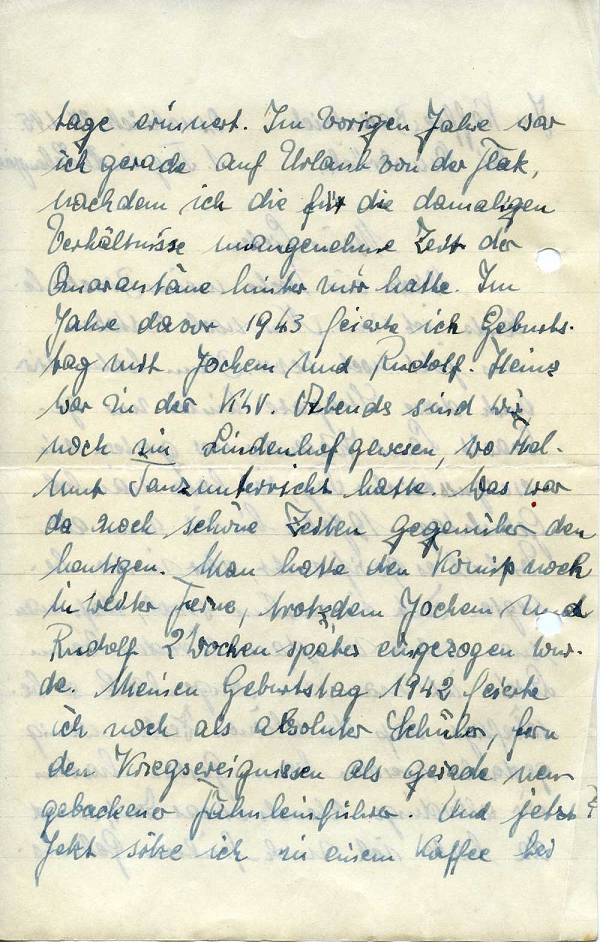 tage erinnert. Im vorigen Jahre war
ich gerade auf Urlaub von der Flak,
nachdem ich die für die damaligen
Verhältnisse unangenehme Zeit der
Quarantäne hinter mir hatte. Im
Jahre davor 1943 feierte ich Geburts-
tag mit Jochem und Rudolf. Heinz
war in der KLV. Abends sind wir
noch im Lindenhof gewesen, wo Hel-
mut Tanzunterricht hatte. Das war
da noch schöne Zeiten gegenüber den
heutigen. Man hatte den Komiß noch
in weiter Ferne, trotzdem Jochem und
Rudolf 2 Wochen später eingezogen wur-
de. Meinen Geburtstag 1942 feierte
ich noch als absoluter Schüler, fern
den Kriegsereignissen als gerade neu
gebackener Fähnleinführer. Und jetzt?
Jetzt sitze ich in einem Kaffee bei